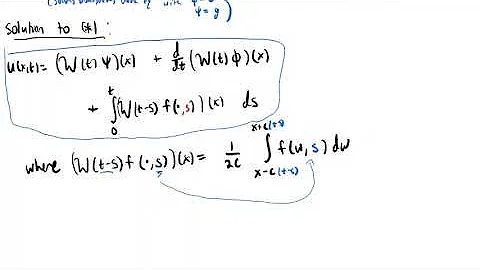 with ψ = g )
solution to (*) :
u(x,t) = (W(t) ψ)(x) + d/dt (W(t) ϕ)(x)
+ ∫₀ᵗ (W(t-s) f(·,s))(x) ds
where (W(t-s) f(·,s))(x) = 1/2c ∫_{x-c(t-s)}^{x+c(t-s)} f(w,s) dw